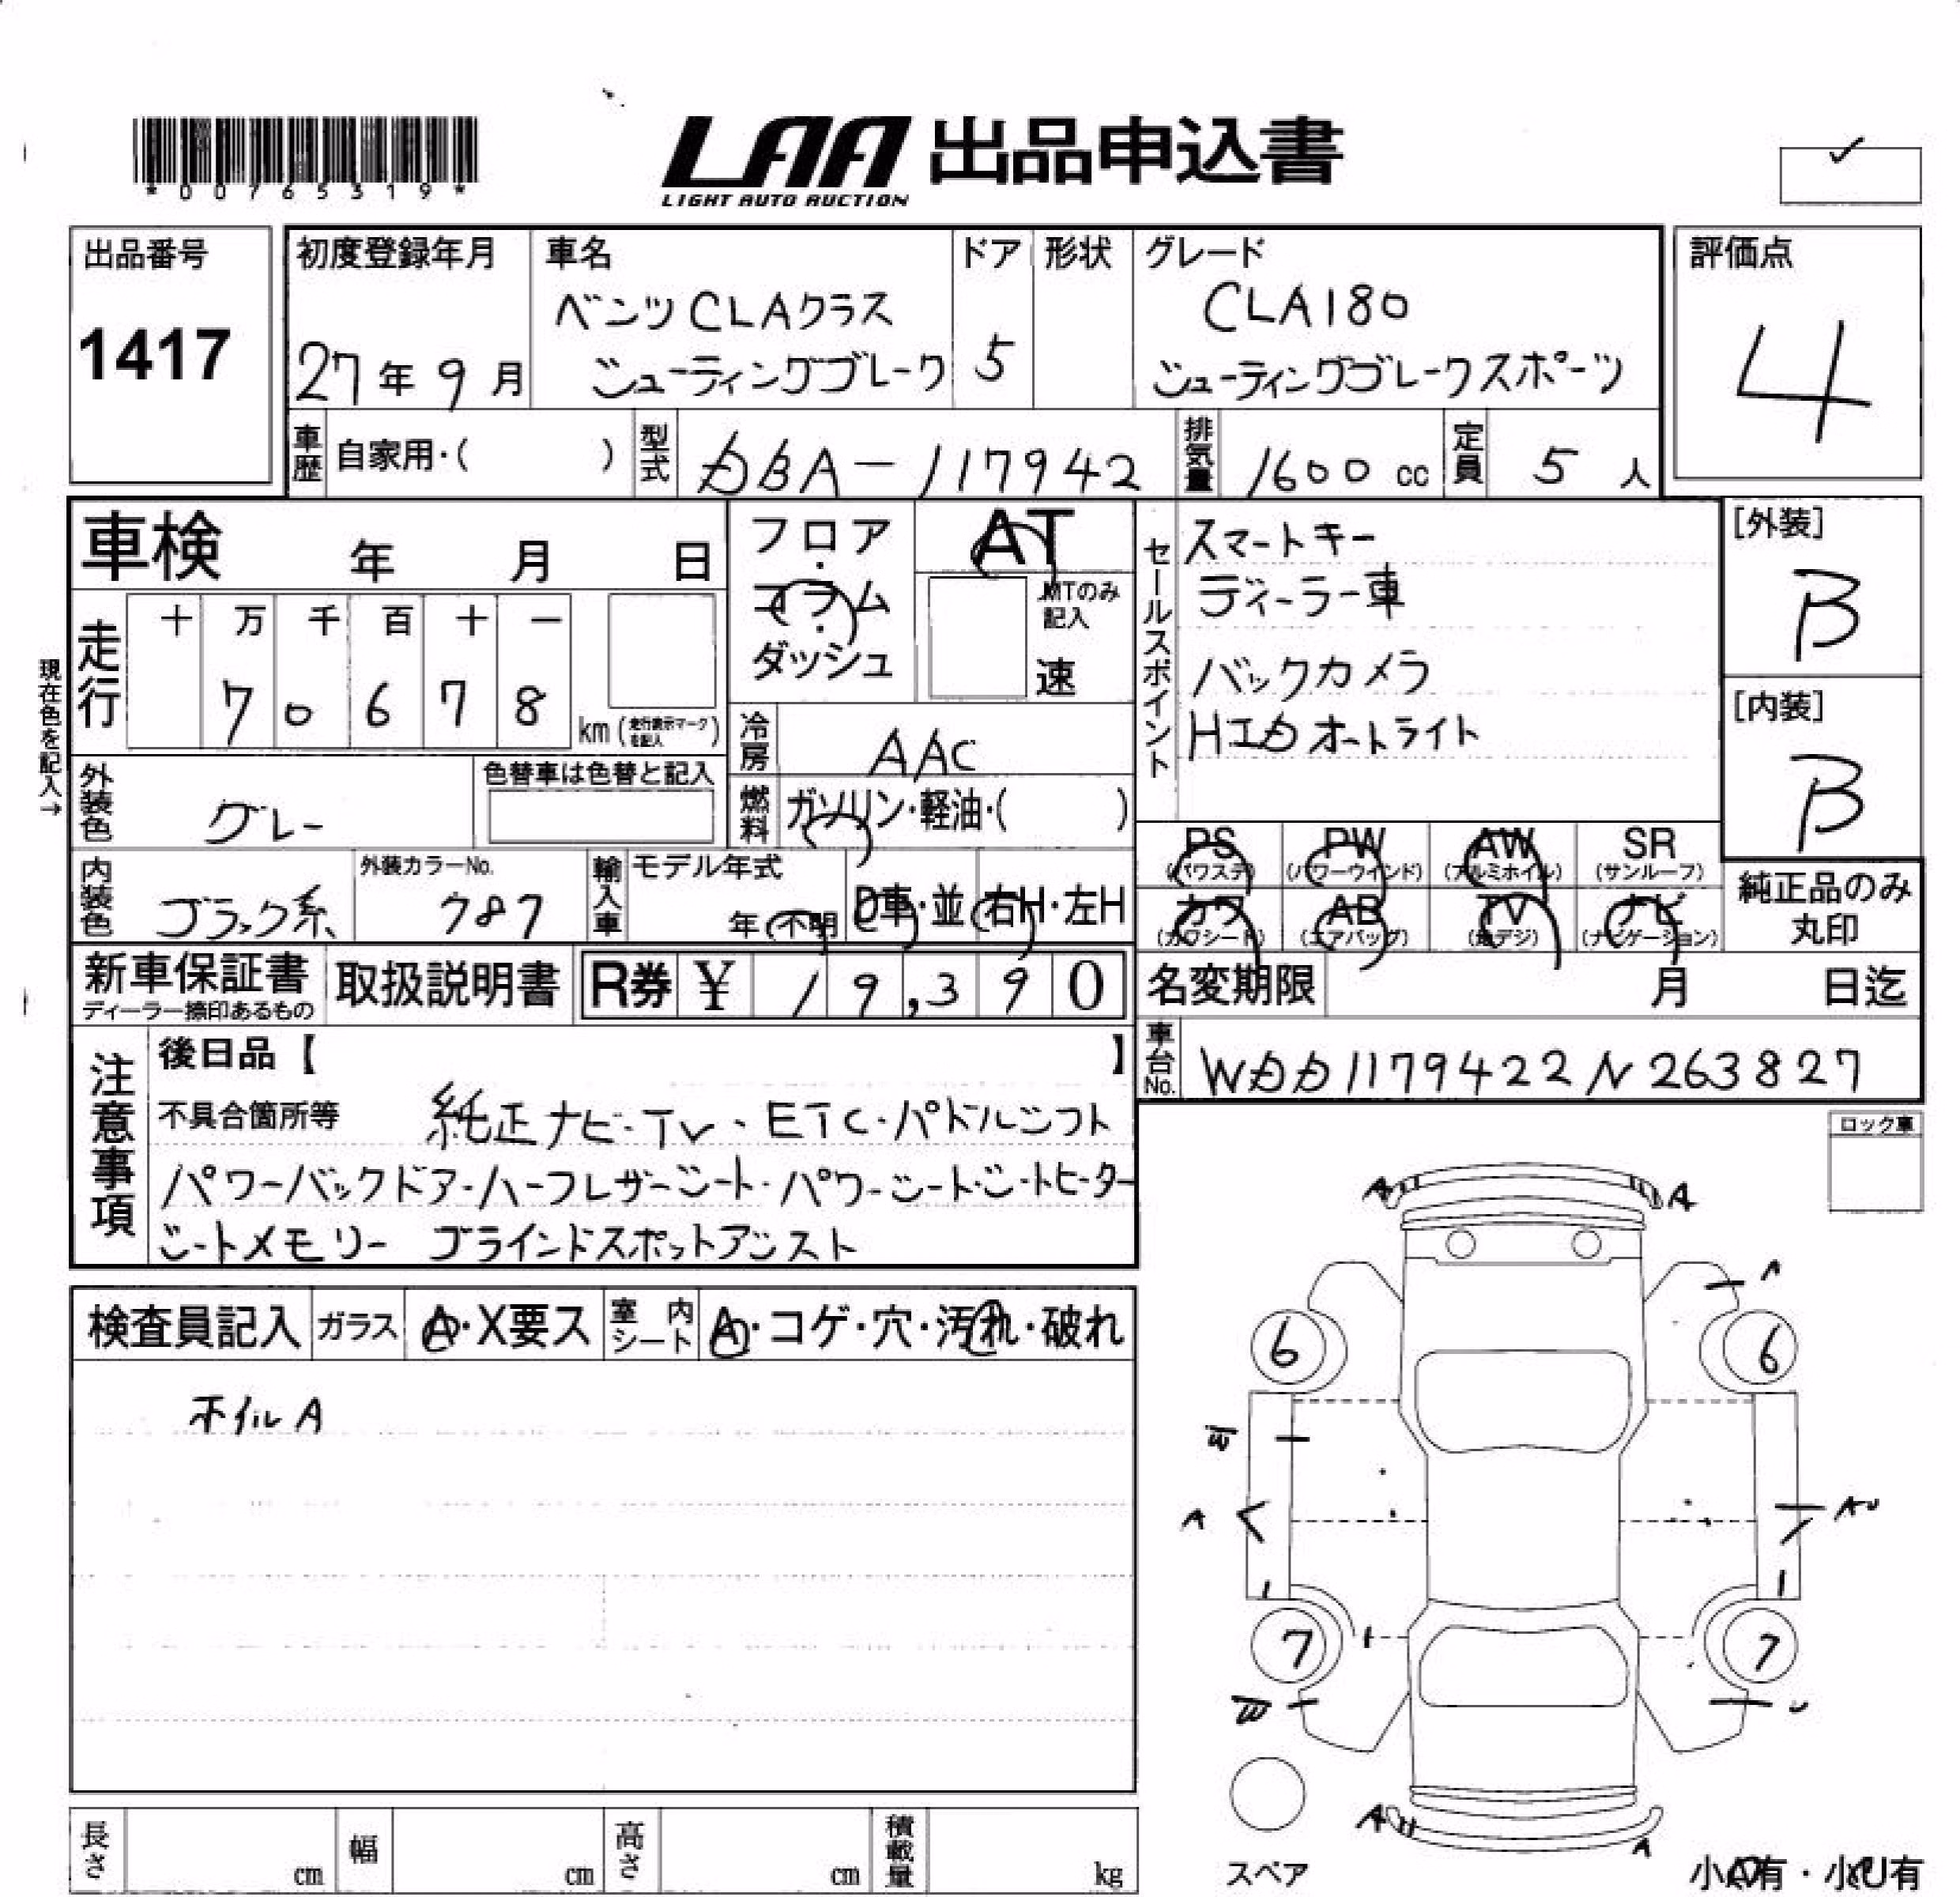 *00765319*
LAA 出品申込書
LIGHT AUTO AUCTION
出品番号
1417
初度登録年月
27年9月
車名
ベンツCLAクラス
シューティングブレーク
ドア
5
形状
グレード
CLA180
シューティングブレークスポーツ
評価点
4
車歴 自家用・( )
型式 DBA-117942
排気量 1600 cc
定員 5 人
車検 年 月 日
走行
十 万 千 百 十 一
7 0 6 7 8
km (走行表示マークを記入)
現在色を記入→
フロア・コラム・ダッシュ
AT
MTのみ記入
速
冷房 AAC
燃料 ガソリン・軽油・( )
外装色 グレー
色替車は色替と記入
内装色 ブラック系
外装カラーNo.
787
輸入車
モデル年式
年(不明)
D車・並
右H・左H
セールスポイント
スマートキー
ディーラー車
バックカメラ
HIDオートライト
[外装]
B
[内装]
B
PS (パワステ)
PW (パワーウインド)
AW (アルミホイル)
SR (サンルーフ)
カワ (カワシート)
AB (エアバッグ)
TV (地デジ)
ナビ (ナビゲーション)
純正品のみ丸印
新車保証書
ディーラー捺印あるもの
取扱説明書
R券 ¥ 19,390
名変期限 月 日迄
車台No. WDD1179422N263827
注意事項
後日品【 】
不具合箇所等 純正ナビ・TV・ETC・パドルシフト
パワーバックドア・ハーフレザーシート・パワーシート・シートヒーター
シートメモリー ブラインドスポットアシスト
検査員記入
ガラス A・X要ス
室内シート A・コゲ・穴・汚れ・破れ
ホイルA
ロック車
A A
A
6 6
A AU
7 7
U
A
A
スペア
小A有・小U有
長さ cm
幅 cm
高さ cm
積載量 kg